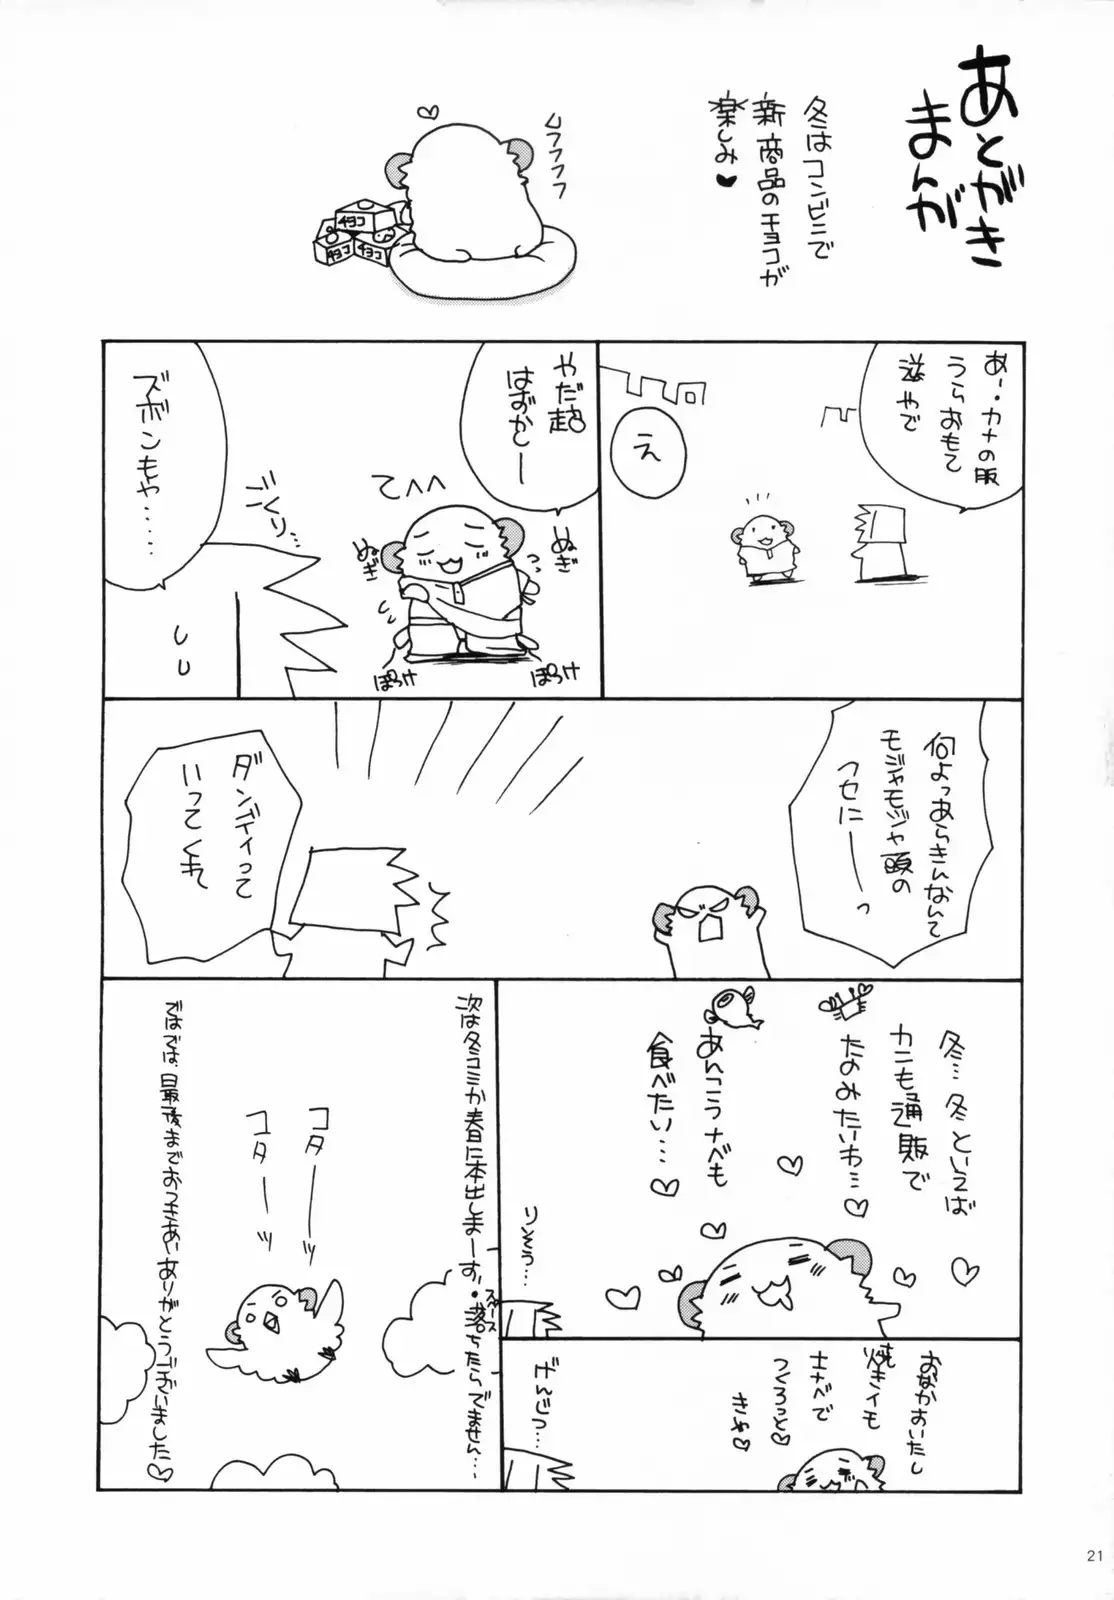 あとがき
まんが
冬はコンビニで
新商品のチョコが
楽しみ♥
ムフフフフ
チョコ
チョコ
チョコ
あー・カナの服
うらおもて
逆やで
え
やだ超
はずかしー
てへへ
ぬぎ
ぬぎ
ぽろけ
ぽろけ
ごくり…
ズボンもや・・・・・
何よっあらきんなんて
モジャモジャ頭の
クセにーーっ
ダンディって
いってくれ
冬…冬といえば
カニも通販で
たのみたいわ…♡
あんこうナベも
食べたい…♡
りそう…
おなかすいたし
焼きイモ
土ナベで
つくろっと♡
きゃ♡
げんじつ…
次は冬コミか春に本出しまーす。落ちたらでません…
スペース
コターーッ
コターーッ
ではでは、最後までおつきあいありがとうございました♡
21